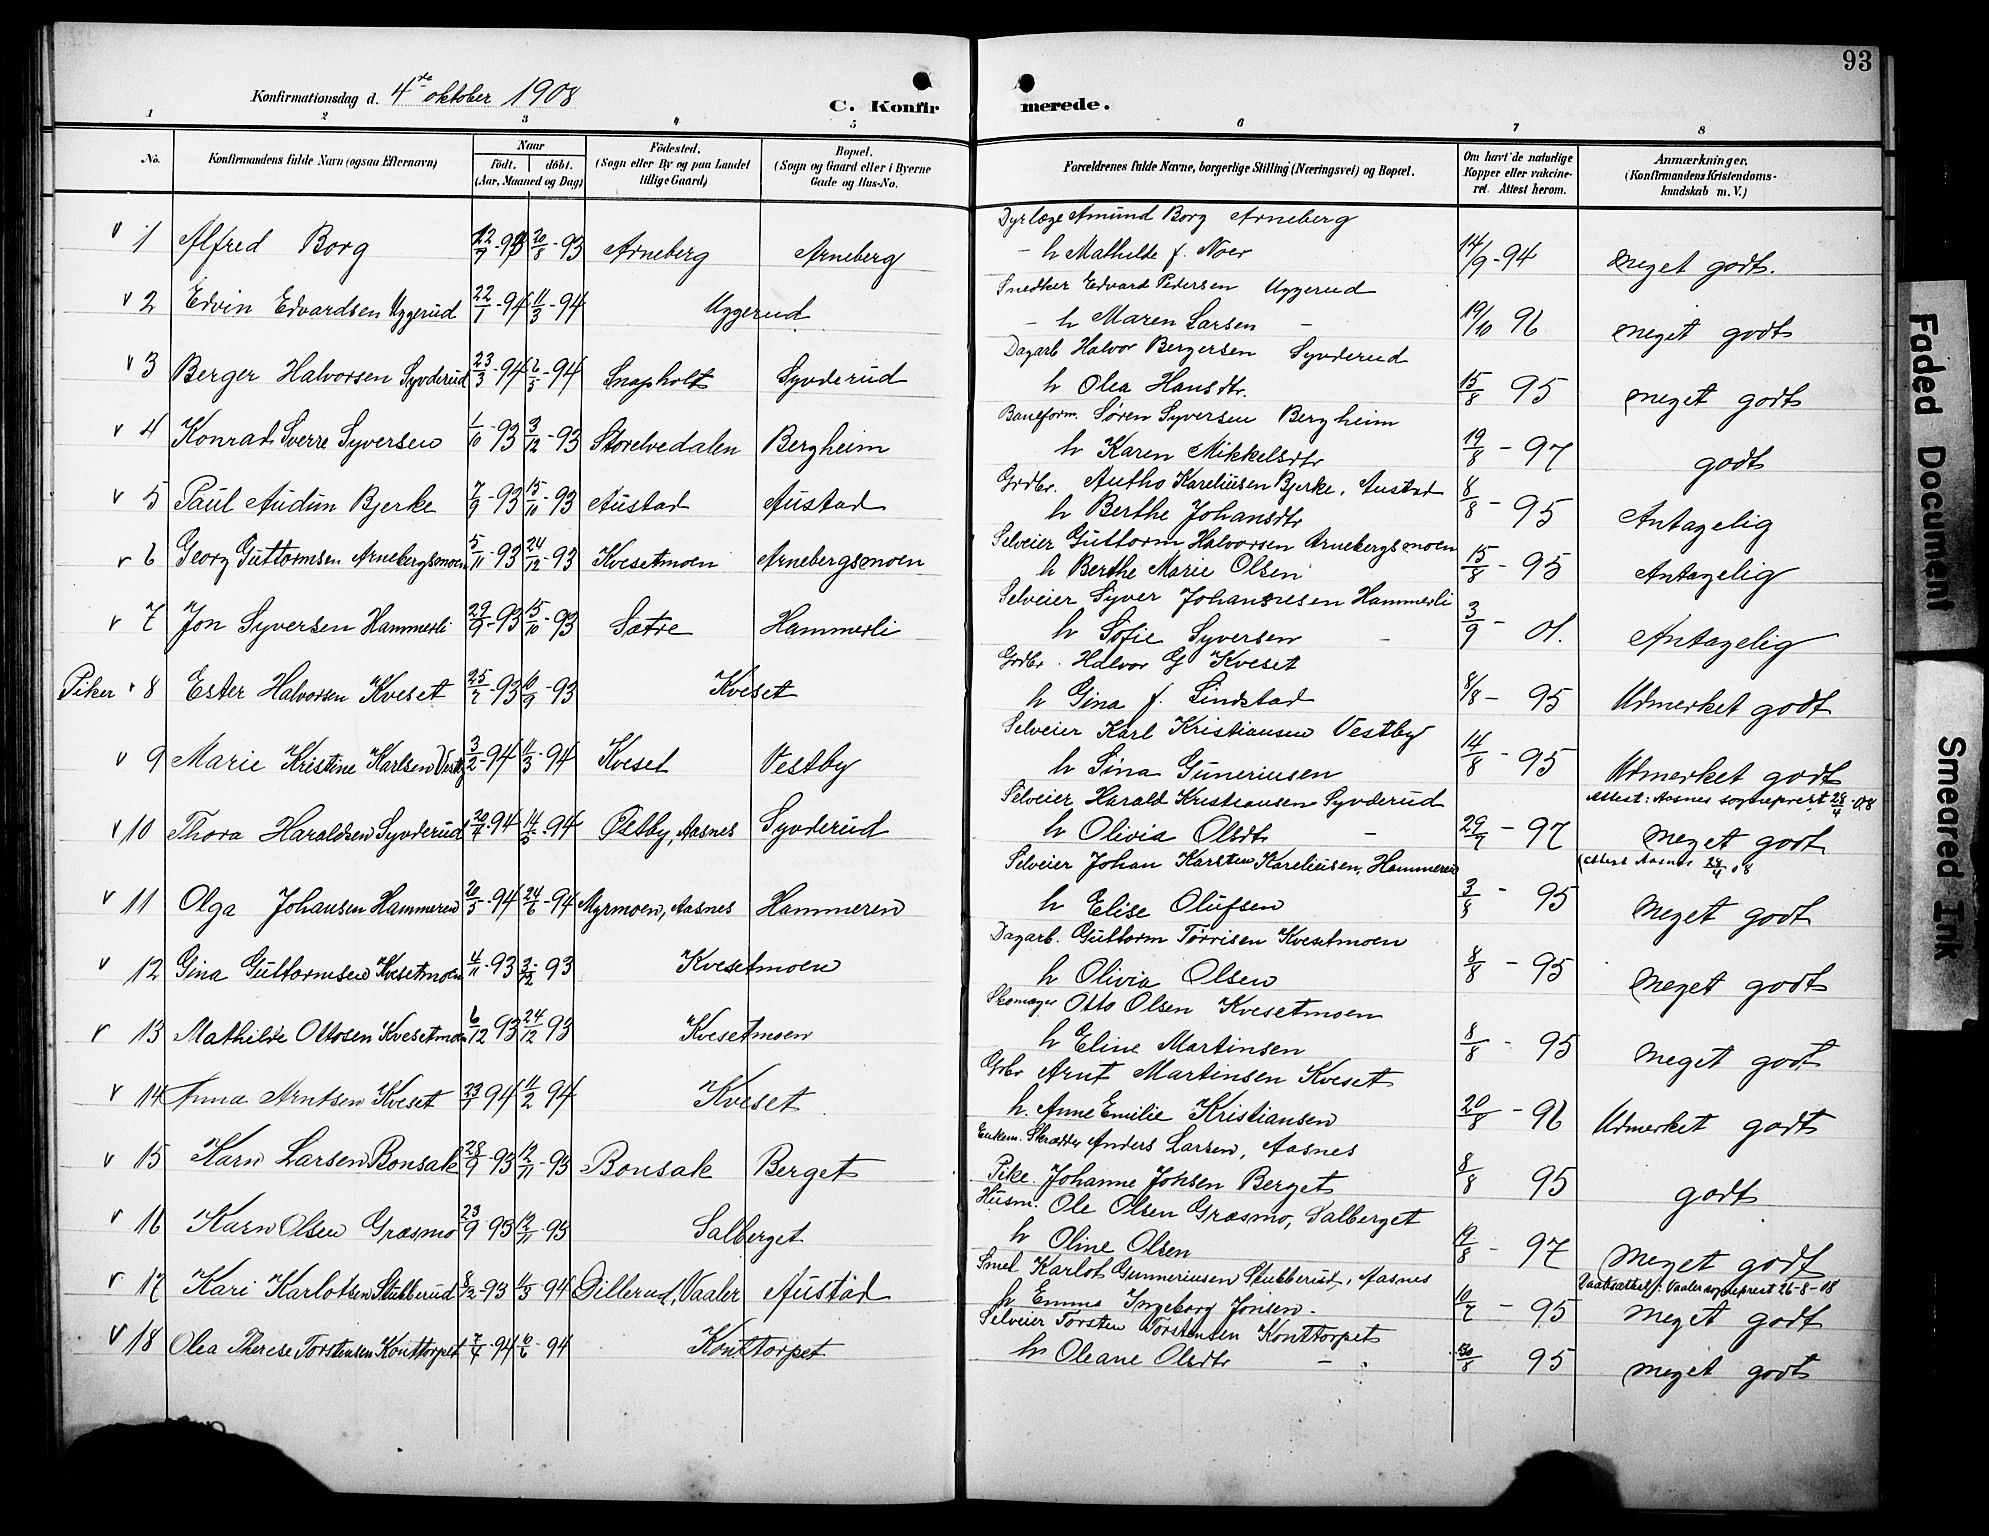 93
Konfirmationsdag d. 4de oktober 1908
C. Konfirmerede.
1 2 3 4 5 6 7 8
No. Konfirmandens fulde Navn (ogsaa Efternavn) Naar født. døbt. (Aar, Maaned og Dag) Fødested. (Sogn eller By og paa Landet tillige Gaard) Bopæl. (Sogn og Gaard eller i Byerne Gade og Hus-No. Forældrenes fulde Navne, borgerlige Stilling (Næringsvei) og Bopæl. Om havt de naturlige Kopper eller vakcineret. Attest herom. Anmærkninger. (Konfirmandens Kristendomskundskab m. V.)
Dyrlæge Amund Borg Arneberg
v 1 Alfred Borg 12/7-93 20/8-93 Arneberg Arneberg - h Mathilde f. Noer 14/9-94 meget godt.
Snedker Edvard Pedersen Uggerud
v 2 Edvin Edvardsen Uggerud 22/1-94 11/3-94 Uggerud - h Maren Larsen - 19/10 96 meget godt
Dagarb Halvor Bergersen Syvderud
v 3 Berger Halvorsen Syvderud 23/3-94 6/5-94 Snapholt Syvderud h Olea Hansdtr. 15/8 95 meget godt
Baneform. Søren Syversen Bergheim
v 4 Konrad Sverre Syversen 1/10-93 3/12-93 Storelvedalen Bergheim h Karen Mikkelsdtr 19/8-97 godt
Grdbr. Autho Kareliusen Bjerke, Austad
v 5 Paul Audun Bjerke 7/9-93 15/10-93 Austad Austad h Berthe Johansdtr 8/8-95 Antagelig
Selveier Guttorm Halvorsen Arnebergsmoen
v 6 Georg Guttormsen Arnebergsmoen 5/11-93 24/12-93 Kvesetmoen Arnebergsmoen h Berthe Marie Olsen 15/8-95 Antagelig
Selveier Syver Johannesen Hammerli
v 7 Jon Syversen Hammerli 29/9-93 15/10-93 Sætre Hammerli h Sofie Syversen - 3/9-01. Antagelig
Grdbr. Halvor G Kveset
Piker v 8 Ester Halvorsen Kveset 25/7-93 6/9-93 Kveset h Gina f. Lindstad 8/8-95 Udmerket godt
Selveier Karl Kristiansen Vestby
v 9 Marie Kristine Karlsen Vestby 3/2-94 11/3-94 Kveset Vestby h Lina Guneriusen 14/8-95 Udmerket godt
Selveier Harald Kristiansen Syvderud Attest: Aasnes sogneprest 28/4-08
v 10 Thora Haraldsen Syvderud 30/4-94 14/5-94 Østby, Aasnes Syvderud h Olivia Olsdtr - 29/9-97 meget godt
Selveier Johan Karsten Kareliusen, Hammeren (Attest Aasnes 28/4 08
v 11 Olga Johansen Hammeren 20/5-94 24/6-94 Myrmoen, Aasnes Hammeren h Elise Olufsen 3/8-95 meget godt
Dagarb. Guttorm Tørrisen Kvesetmoen
v 12 Gina Guttormsen Kvesetmoen 4/11-93 3/12-93 Kvesetmoen h Olivia Olsen 8/8-95 meget godt
Skomager Otto Olsen Kvesetmoen
v 13 Mathilde Ottosen Kvesetmoen 6/12 93 24/12 93 Kvesetmoen h Eline Martinsen 8/8-95 meget godt
Grbr Arnt Martinsen Kveset
v 14 Anna Arntsen Kveset 23/1 94 11/2 94 Kveset h. Anne Emilie Kristiansen 20/8-96 Udmerket godt
Enkem. Skrædder Anders Larsen, Aasnes
v 15 Karn Larsen Bonsak 28/9-93 12/11-93 Bonsak Berget Pike. Johanne Johsen Berget 8/8 95 godt
Husm. Ole Olsen Græsmo, Salberget
v 16 Karn Olsen Græsmo 23/9 93 12/11-93 Salberget h Oline Olsen 19/8-97 meget godt
Smed Karlot Gunneriusen Stubberud, Aasnes Daabsattest f. Vaaler sogneprest 26-8-08
v 17 Kari Karlotsen Stubberud 8/12-93 11/3 94 Dillerud, Vaaler Austad h Emma Ingeborg Jonsen. 10/7-95 meget godt
Selveier Torsten Torstensen Konttorpet
v 18 Olea Therese Torstensen Konttorpet 7/4-94 6/6-94 Konttorpet h Oleane Olsdtr - 30/8 95 meget godt
Faded Document
Smeared Ink